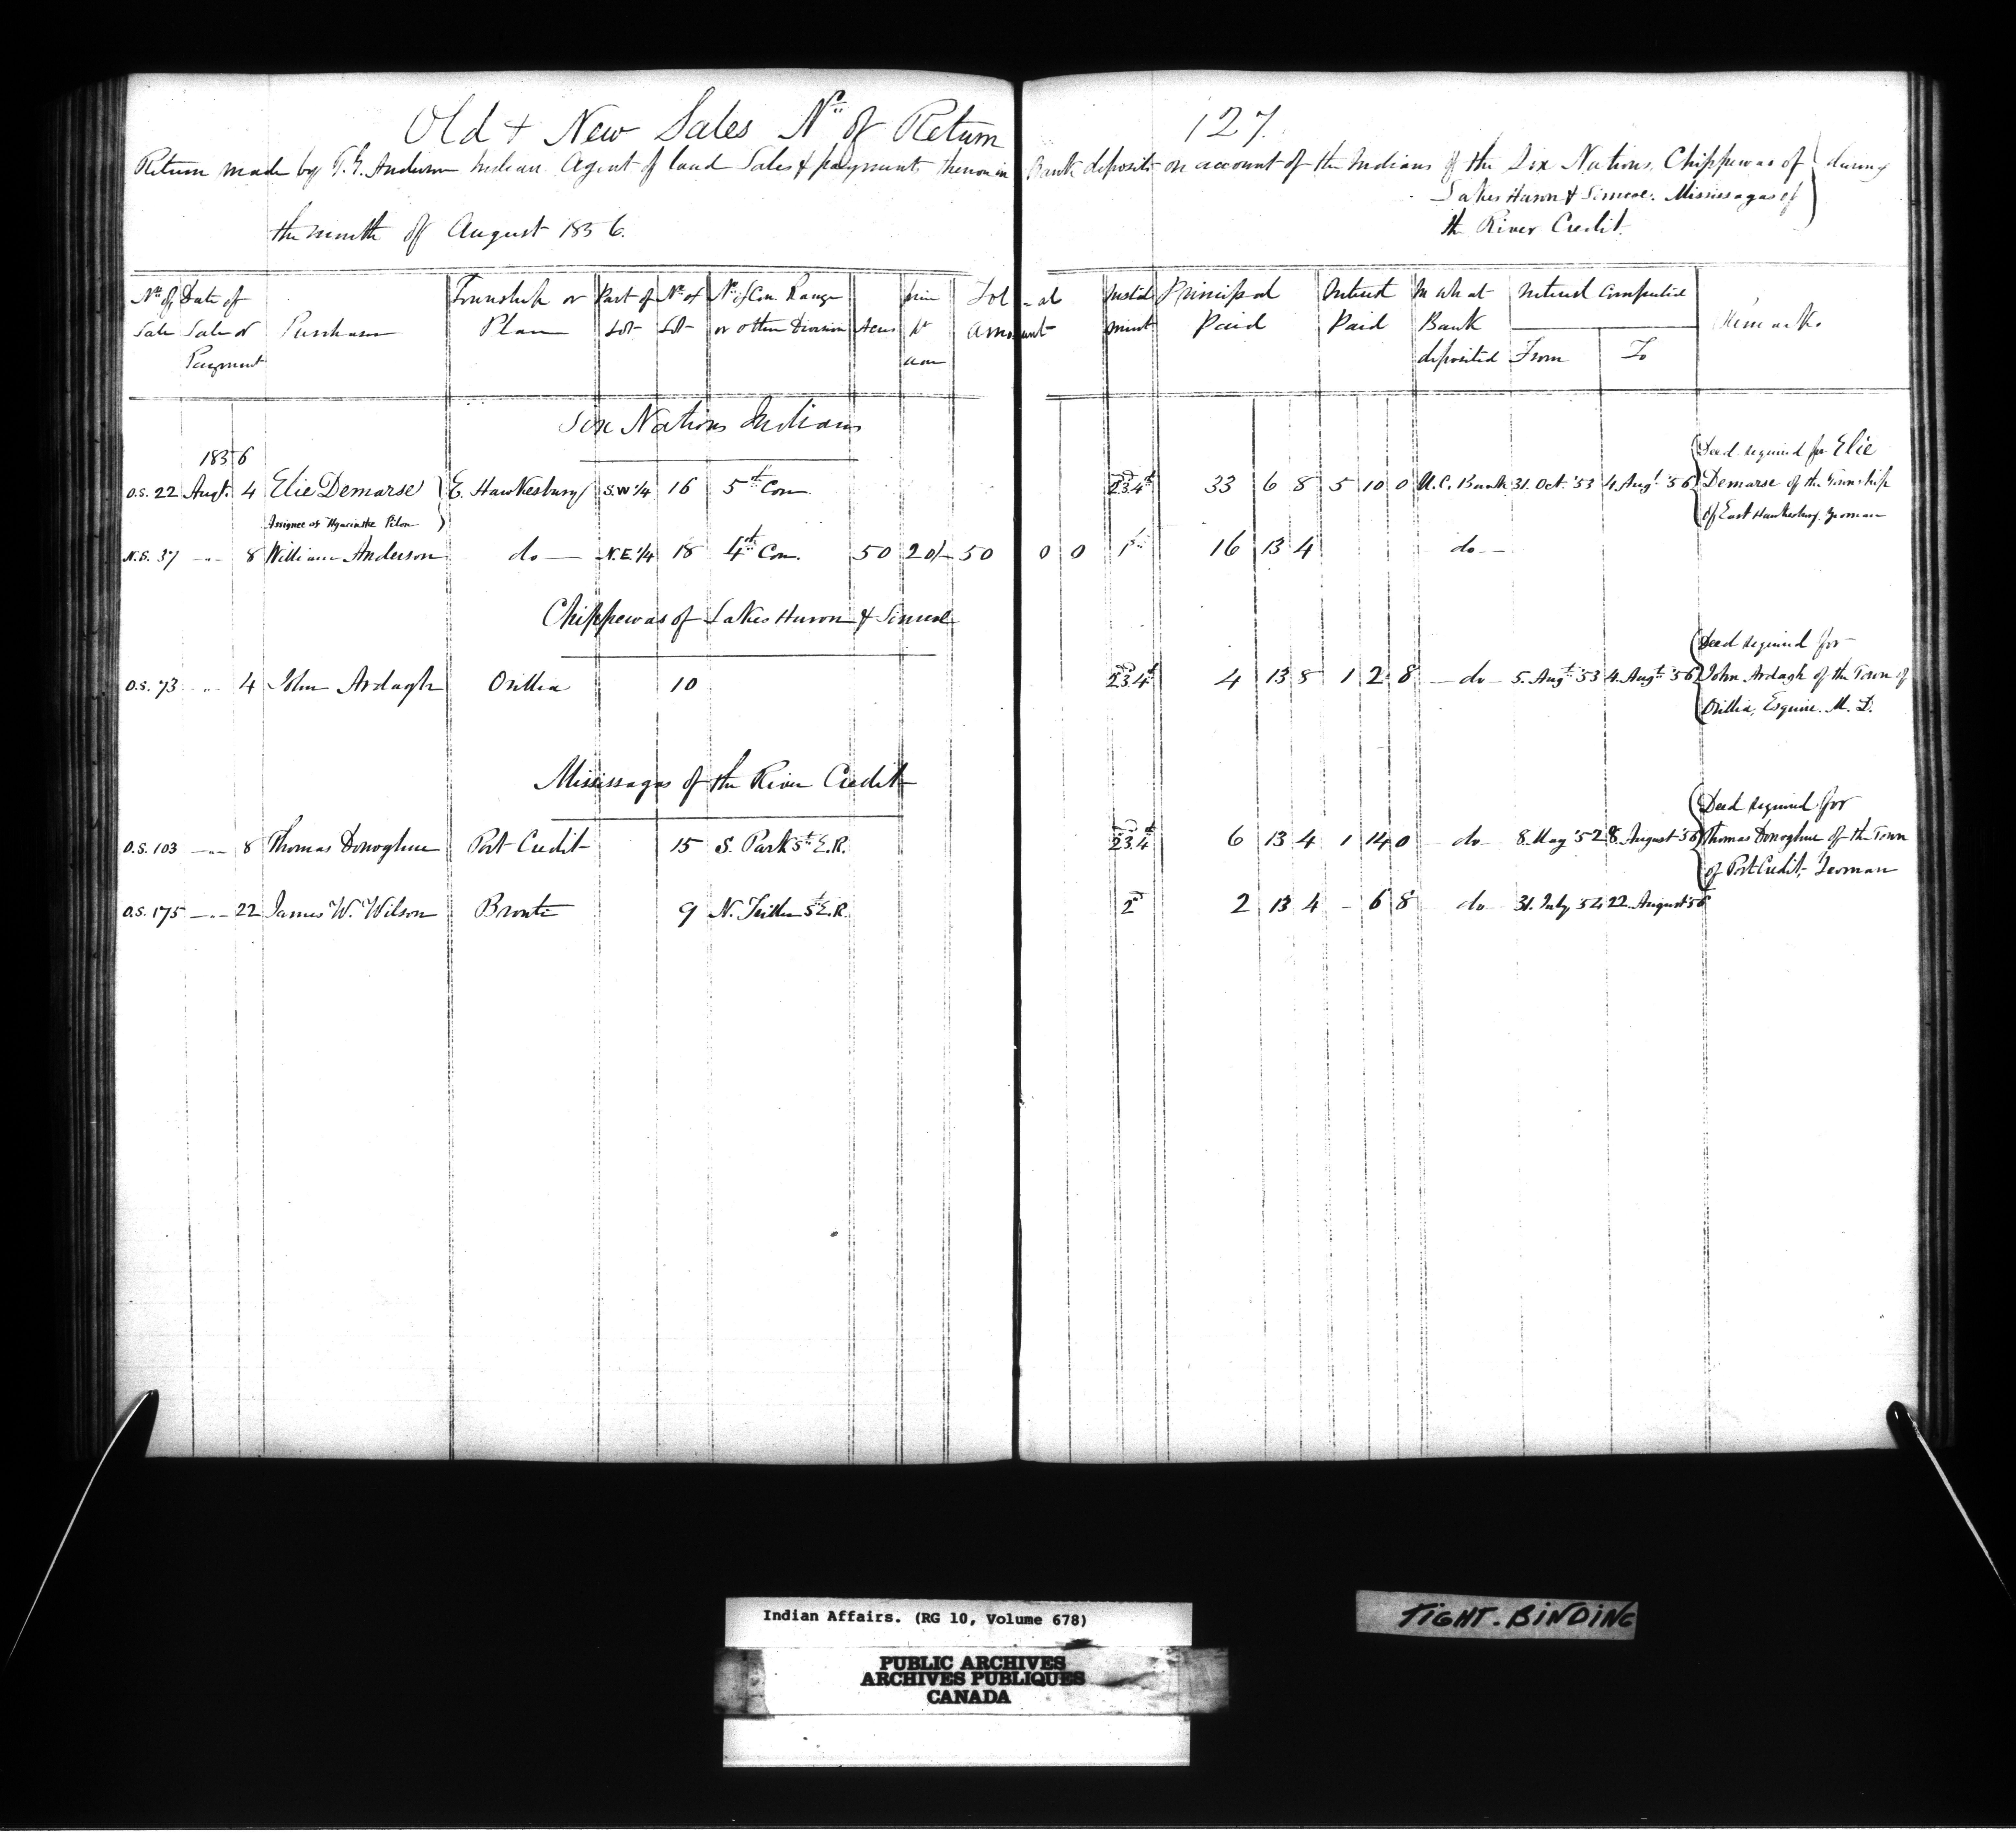 Old & New Sales No. of Return 127.
Return made by T. G. Anderson Indian Agent of land Sales & payments thereon in Bank deposits on account of the Indians of the Six Nations, Chippewas of } during
Lakes Huron & Simcoe. Mississagas of
the River Credit.
the month of August 1856.
No. of Sale | Date of Sale or Payment | Purchaser | Township or Plan | Part of Lot | No. of Lot | No. of Con. Range or other Division | Acres | Price pr acre | Total Amount | Instalment | Principal Paid | Interest Paid | In what Bank deposited | Interest Computed From | To | Remarks
Six Nations Indians
1856
O.S. 22 Augt. 4 Elie Demarse E. Hawkesbury S.W 1/4 16 5th Con 2 3 4th 33 6 8 5 10 0 U.C. Bank 31. Oct. '53 4 Augt. '56 Deed required for Elie
Demarse of the Township
of East Hawkesbury. Yeoman
Assignee of Hyacinthe Pilon
N.S. 37 -"- 8 William Anderson do N.E. 1/4 18 4th Con. 50 20/- 50 0 0 1st 16 13 4 do
Chippewas of Lakes Huron & Simcoe
O.S. 73 " 4 John Ardagh Orillia 10 2 3 4th 4 13 8 1 2 8 do 5. Augt '53 4. Augt '56 Deed required for
John Ardagh of the Town of
Orillia, Esquire. M. D.
Mississagas of the River Credit
O.S. 103 -"- 8 Thomas Donoghue Port Credit 15 S. Park St E.R. 2 3 4th 6 13 4 1 14 0 do 8. May '52 8. August '56 Deed required for
Thomas Donoghue of the Town
of Port Credit, Yeoman
O.S. 175 -"- 22 James W. Wilson Bronte 9 N. St E.R. 2d 2 13 4 - 6 8 do 31. July 54 22. August '56
Indian Affairs. (RG 10, Volume 678)
PUBLIC ARCHIVES
ARCHIVES PUBLIQUES
CANADA
TIGHT-BINDING